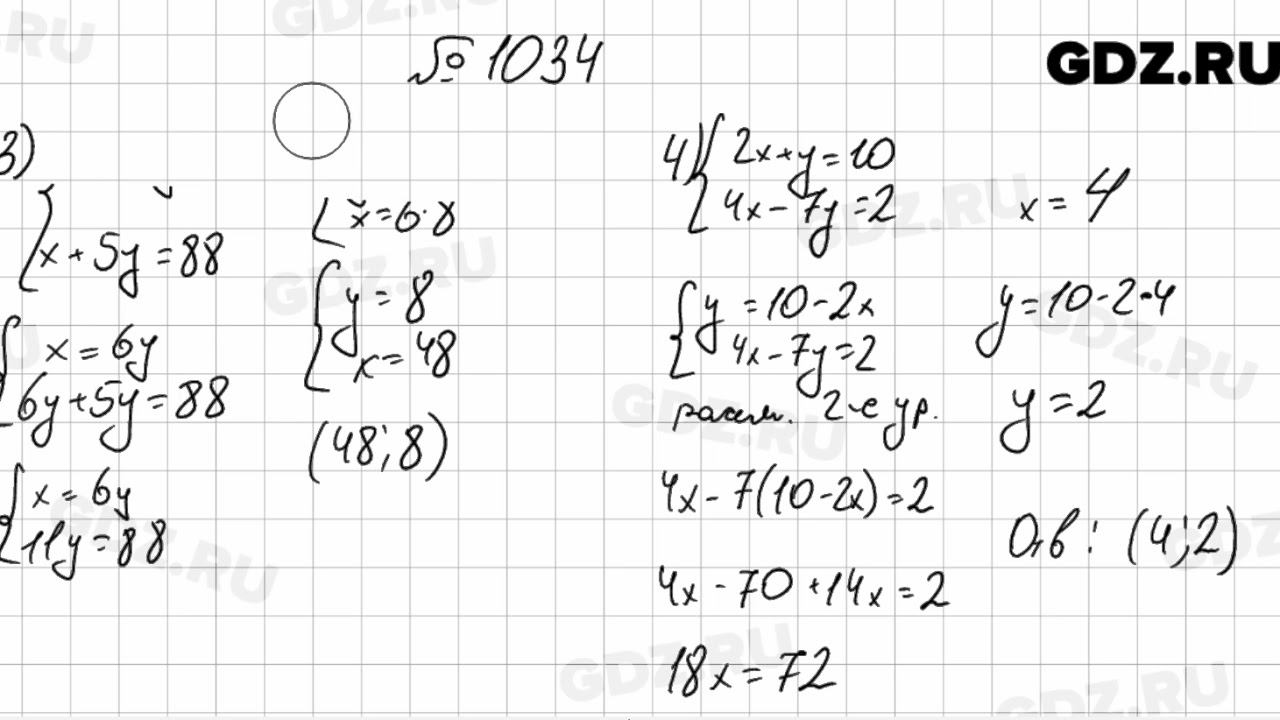 № 1034
GDZ.RU
3)
x + 5y = 88
x = 6y
6y + 5y = 88
x = 6y
11y = 88
x = 6·8
y = 8
x = 48
(48; 8)
4) 2x + y = 10
4x - 7y = 2
y = 10 - 2x
4x - 7y = 2
рассм. 2-е ур.
4x - 7(10 - 2x) = 2
4x - 70 + 14x = 2
18x = 72
x = 4
y = 10 - 2·4
y = 2
Отв: (4; 2)